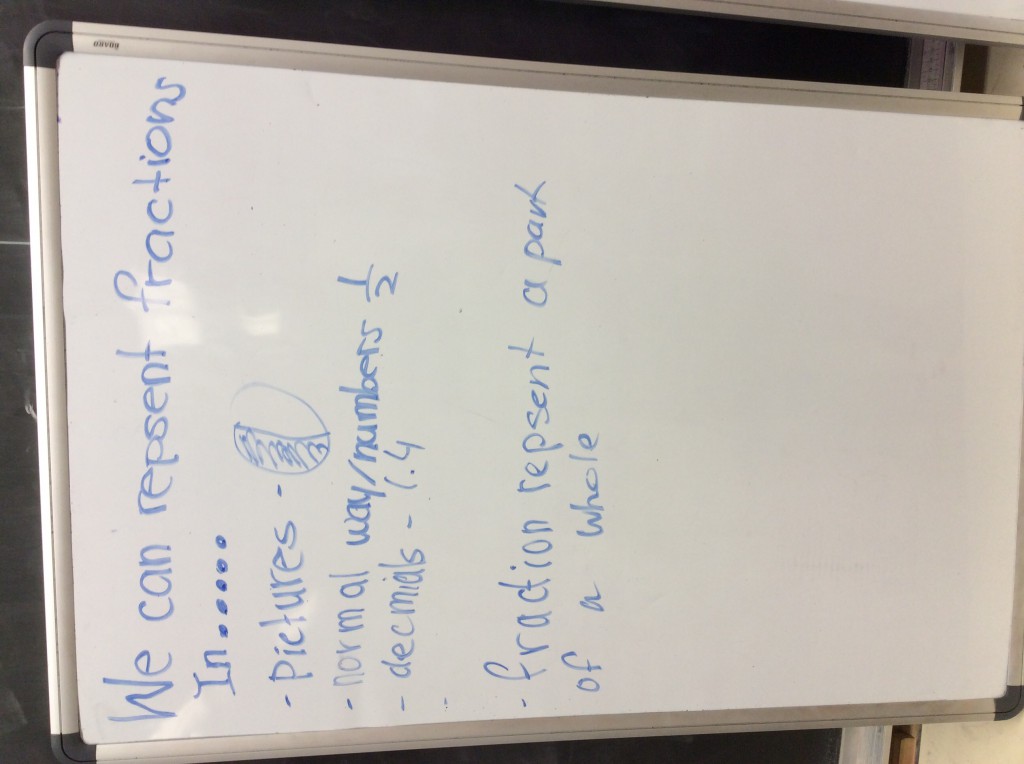 We can repsent fractions
In......
- Pictures -
- normal way/numbers 1/2
- decmials - 1.4
- fraction repsent a part
of a whole